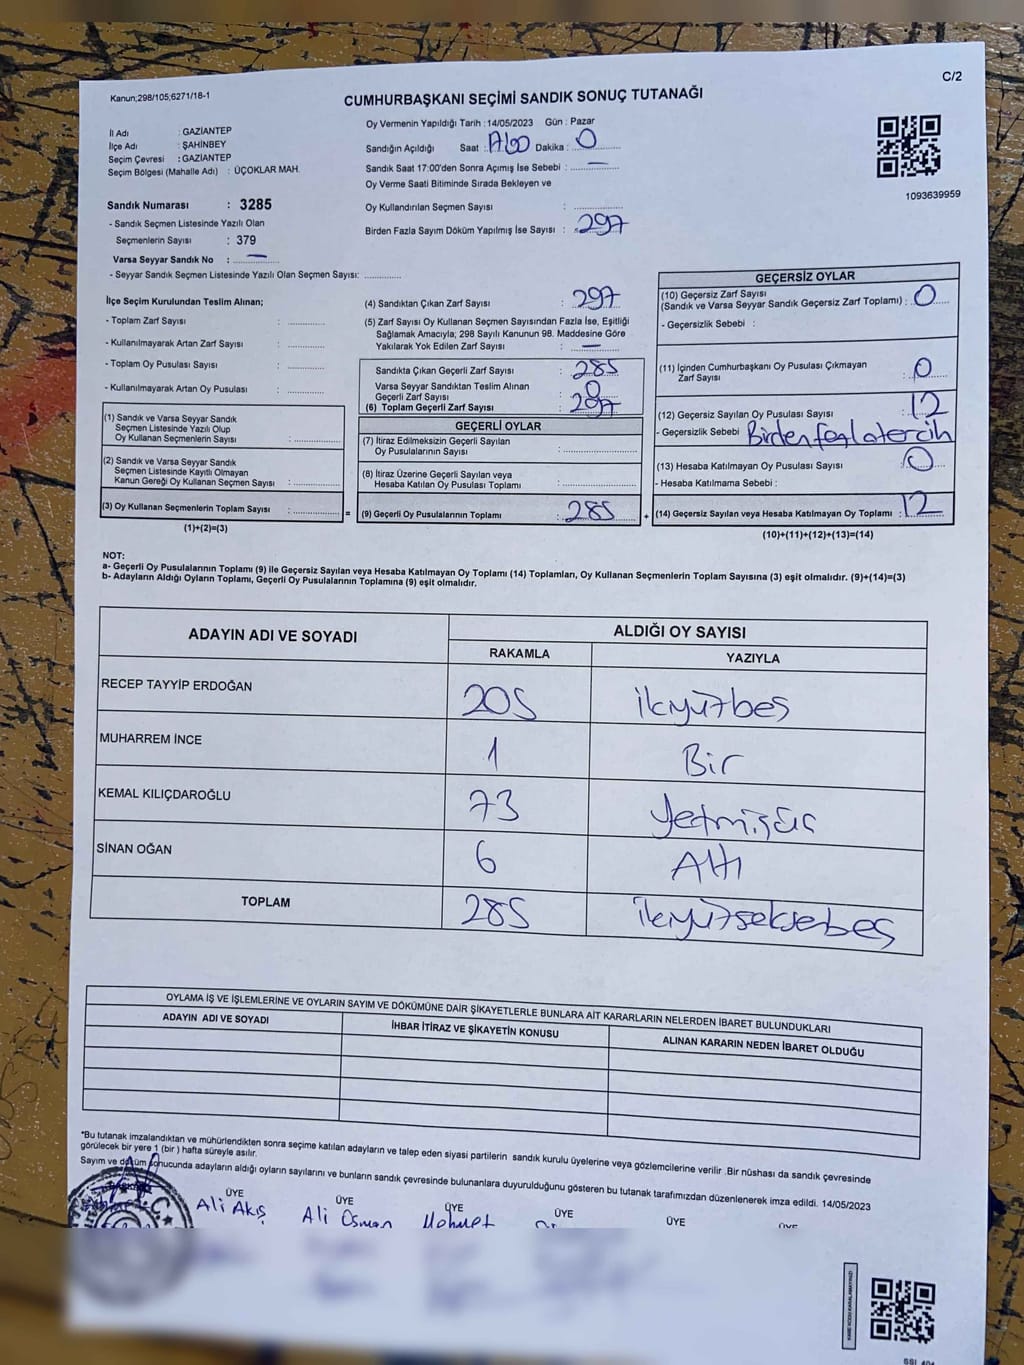 C/2
Kanun;298/105,6271/18-1
CUMHURBAŞKANI SEÇİMİ SANDIK SONUÇ TUTANAĞI
İl Adı : GAZİANTEP
İlçe Adı : ŞAHİNBEY
Seçim Çevresi : GAZİANTEP
Seçim Bölgesi (Mahalle Adı) : ÜÇOKLAR MAH.
Sandık Numarası : 3285
- Sandık Seçmen Listesinde Yazılı Olan
Seçmenlerin Sayısı : 379
Varsa Seyyar Sandık No : —
- Seyyar Sandık Seçmen Listesinde Yazılı Olan Seçmen Sayısı: ..............
Oy Vermenin Yapıldığı Tarih : 14/05/2023 Gün : Pazar
Sandığın Açıldığı Saat : Dakika : 0
Sandık Saat 17:00'den Sonra Açımış İse Sebebi : —
Oy Verme Saati Bitiminde Sırada Bekleyen ve
Oy Kullandırılan Seçmen Sayısı : ..............
Birden Fazla Sayım Döküm Yapılmış İse Sayısı : 297
1093639959
İlçe Seçim Kurulundan Teslim Alınan;
- Toplam Zarf Sayısı : ..............
- Kullanılmayarak Artan Zarf Sayısı : ..............
- Toplam Oy Pusulası Sayısı : ..............
- Kullanılmayarak Artan Oy Pusulası : ..............
(1) Sandık ve Varsa Seyyar Sandık
Seçmen Listesinde Yazılı Olup
Oy Kullanan Seçmenlerin Sayısı : ..............
(2) Sandık ve Varsa Seyyar Sandık
Seçmen Listesinde Kayıtlı Olmayan
Kanun Gereği Oy Kullanan Seçmen Sayısı : ..............
(3) Oy Kullanan Seçmenlerin Toplam Sayısı : .............. =
(1)+(2)=(3)
(4) Sandıktan Çıkan Zarf Sayısı : 297
(5) Zarf Sayısı Oy Kullanan Seçmen Sayısından Fazla İse, Eşitliği
Sağlamak Amacıyla; 298 Sayılı Kanunun 98. Maddesine Göre
Yakılarak Yok Edilen Zarf Sayısı : —
Sandıkta Çıkan Geçerli Zarf Sayısı : 285
Varsa Seyyar Sandıktan Teslim Alınan
Geçerli Zarf Sayısı : 0
(6) Toplam Geçerli Zarf Sayısı : 297
GEÇERLİ OYLAR
(7) İtiraz Edilmeksizin Geçerli Sayılan
Oy Pusulalarının Sayısı : ..............
(8) İtiraz Üzerine Geçerli Sayılan veya
Hesaba Katılan Oy Pusulası Toplamı : ..............
(9) Geçerli Oy Pusulalarının Toplamı : 285 +
GEÇERSİZ OYLAR
(10) Geçersiz Zarf Sayısı
(Sandık ve Varsa Seyyar Sandık Geçersiz Zarf Toplamı) : 0
- Geçersizlik Sebebi :
(11) İçinden Cumhurbaşkanı Oy Pusulası Çıkmayan
Zarf Sayısı : 0
(12) Geçersiz Sayılan Oy Pusulası Sayısı : 12
- Geçersizlik Sebebi Birden fazla tercih
(13) Hesaba Katılmayan Oy Pusulası Sayısı : 0
- Hesaba Katılmama Sebebi :
(14) Geçersiz Sayılan veya Hesaba Katılmayan Oy Toplamı : 12
(10)+(11)+(12)+(13)=(14)
NOT:
a- Geçerli Oy Pusulalarının Toplamı (9) ile Geçersiz Sayılan veya Hesaba Katılmayan Oy Toplamı (14) Toplamları, Oy Kullanan Seçmenlerin Toplam Sayısına (3) eşit olmalıdır. (9)+(14)=(3)
b- Adayların Aldığı Oyların Toplamı, Geçerli Oy Pusulalarının Toplamına (9) eşit olmalıdır.
ADAYIN ADI VE SOYADI ALDIĞI OY SAYISI
RAKAMLA YAZIYLA
RECEP TAYYİP ERDOĞAN 205 ikiyüzbeş
MUHARREM İNCE 1 Bir
KEMAL KILIÇDAROĞLU 73 Yetmişüç
SİNAN OĞAN 6 Altı
TOPLAM 285 ikiyüzseksebeş
OYLAMA İŞ VE İŞLEMLERİNE VE OYLARIN SAYIM VE DÖKÜMÜNE DAİR ŞİKAYETLERLE BUNLARA AİT KARARLARIN NELERDEN İBARET BULUNDUKLARI
ADAYIN ADI VE SOYADI İHBAR İTİRAZ VE ŞİKAYETİN KONUSU ALINAN KARARIN NEDEN İBARET OLDUĞU
*Bu tutanak imzalandıktan ve mühürlendikten sonra seçime katılan adayların ve talep eden siyasi partilerin sandık kurulu üyelerine veya gözlemcilerine verilir .Bir nüshası da sandık çevresinde
görülecek bir yere 1 (bir ) hafta süreyle asılır.
Sayım ve döküm sonucunda adayların aldığı oyların sayılarını ve bunların sandık çevresinde bulunanlara duyurulduğunu gösteren bu tutanak tarafımızdan düzenlenerek imza edildi. 14/05/2023
ÜYE ÜYE ÜYE ÜYE ÜYE ÜYE
Ali Akış Ali Osman Mehmet